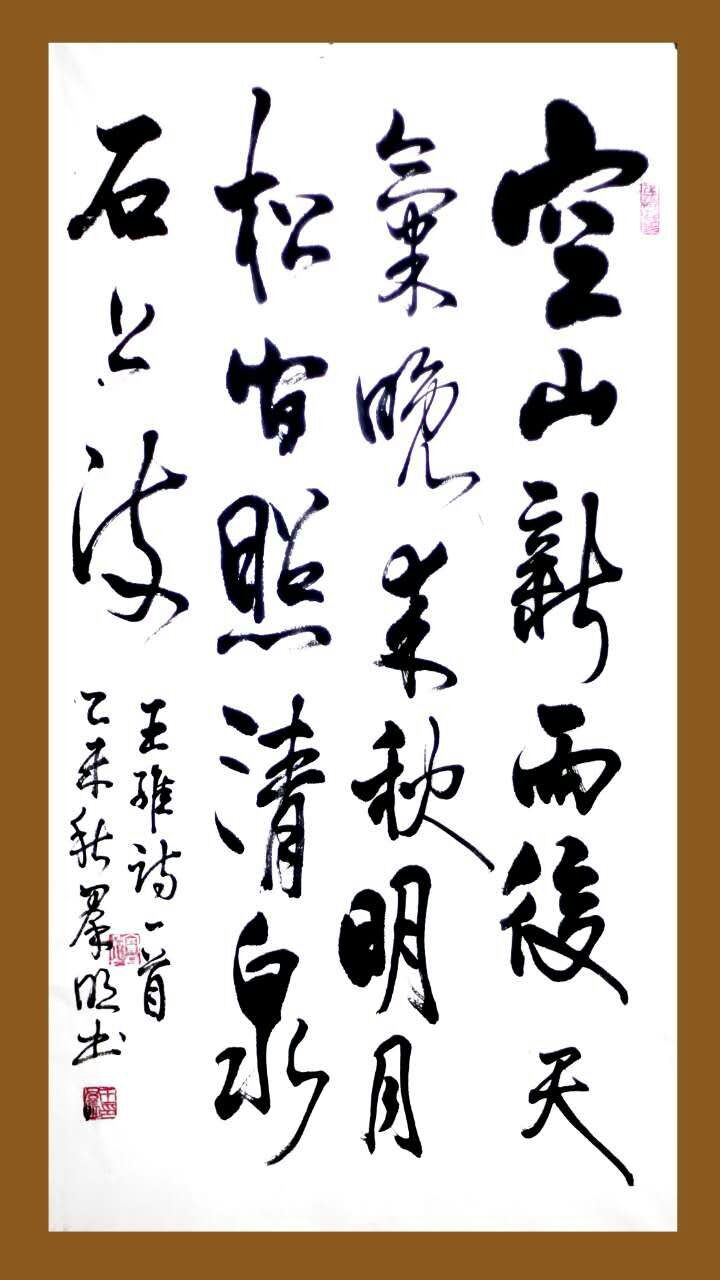 空山新雨後天
氣晚来秋明月
松間照清泉
石上流
王維詩一首
乙未秋明书